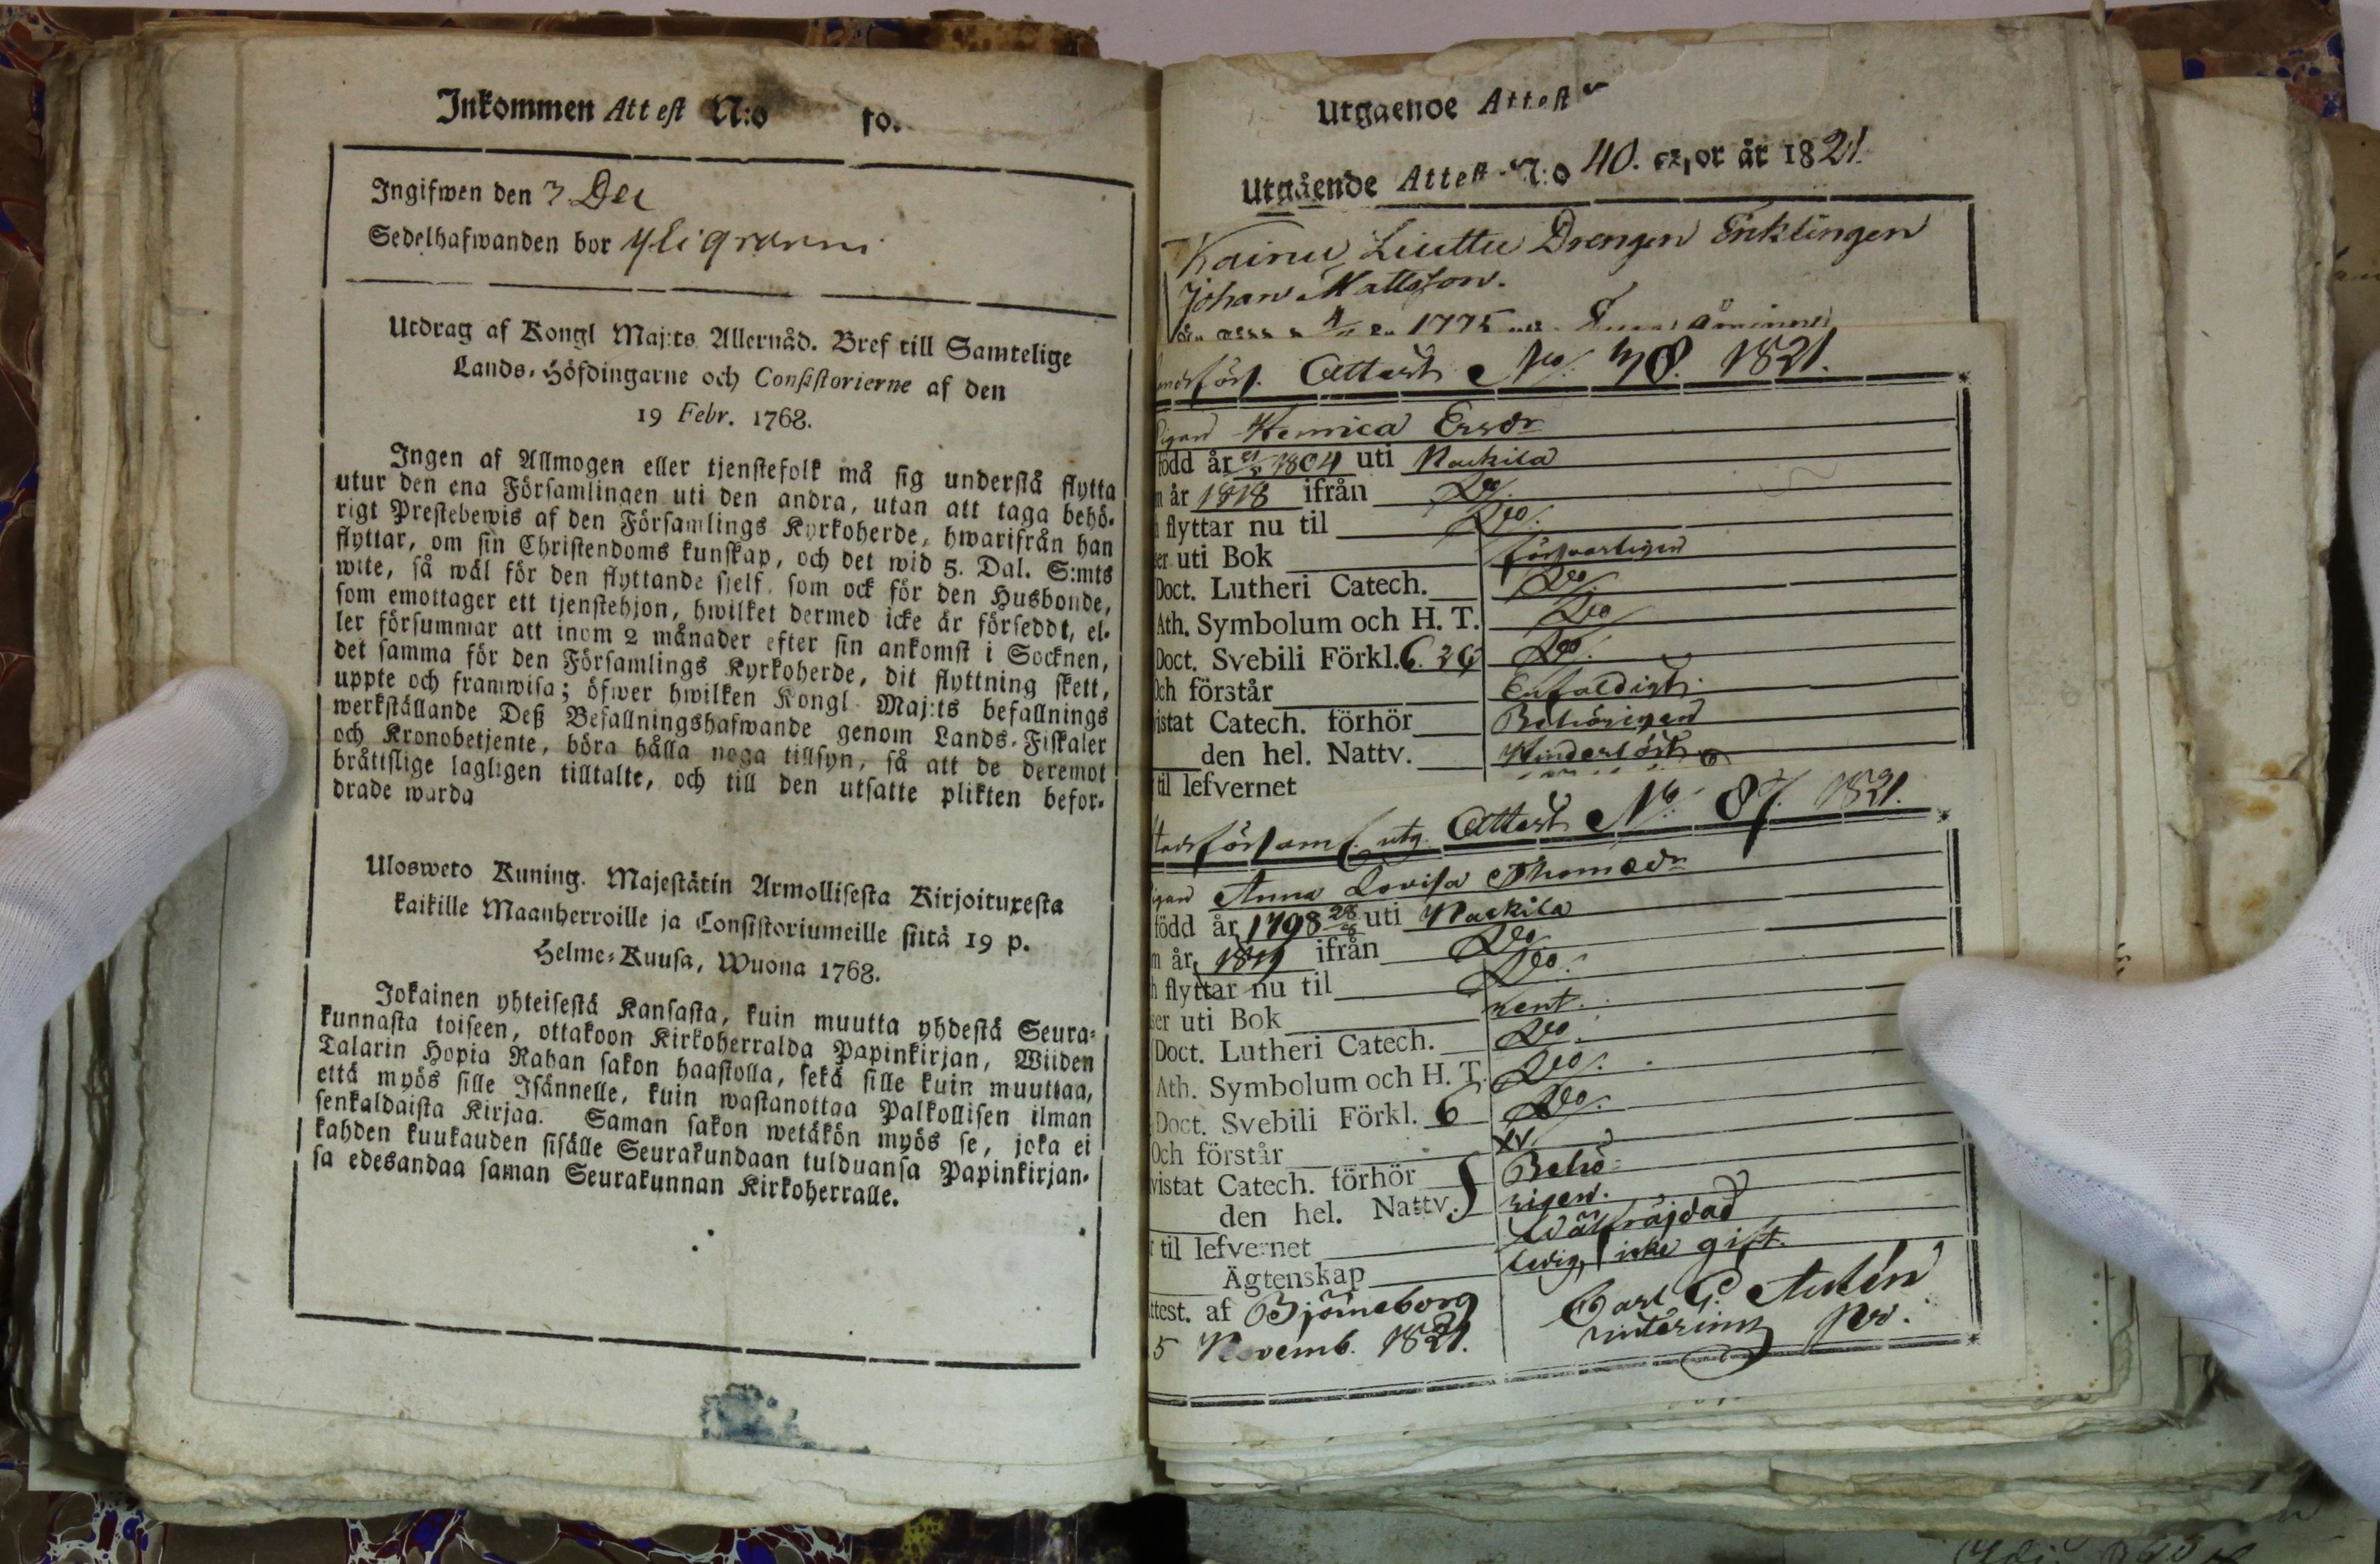 Inkommen Attest N:o fo.
Ingifwen den 3 Dec
Sedelhafwanden bor
Utdrag af Kongl Maj:ts Allernåd. Bref till Samtelige
Lands-Höfdingarne och Consistorierne af den
19 Febr. 1768.
Ingen af Allmogen eller tjenstefolk må sig understå flytta
utur den ena Församlingen uti den andra, utan att taga behö-
rigt Prestebewis af den Församlings Kyrkoherde, hwarifrån han
flyttar, om sin Christendoms kunskap, och det wid 5. Dal. S:mts
wite, så wäl för den flyttande sjelf, som ock för den Husbonde,
som emottager ett tjenstehjon, hwilket dermed icke är förseddt, el-
ler försummar att inom 2 månader efter sin ankomst i Socknen,
det samma för den Församlings Kyrkoherde, dit flyttning skett,
uppte och framwisa; öfwer hwilken Kongl Maj:ts befallnings
werkställande Deß Befallningshafwande genom Lands-Fiskaler
och Kronobetjente, böra hålla noga tillsyn, så att de deremot
bråttslige lagligen tilltalte, och till den utsatte plikten befor-
drade warda
Ulosweto Kuning. Majestätin Armollisesta Kirjoituxesta
kaikille Maanherroille ja Consistoriumeille siitä 19 p.
Helme-Kuusa, Wuona 1768.
Jokainen yhteisestä Kansasta, kuin muutta yhdestä Seura-
kunnasta toiseen, ottakoon Kirkoherralda Papinkirjan, Wiiden
Talarin Hopia Rahan sakon haastolla, sekä sille kuin muuttaa,
että myös sille Isännelle, kuin wastanottaa Palkollisen ilman
senkaldaista Kirjaa. Saman sakon wetäkön myös se, joka ei
kahden kuukauden sisälle Seurakundaan tulduansa Papinkirjan-
sa edesandaa saman Seurakunnan Kirkoherralle.
Utgaende Attest
Utgående Attest N:o 40. för år 1821.
Kainu Liuttu Drengen Enklingen
Johan Mattsson.
1775
Attest No. 1821.
Henrica Ersdr
född år 1804 uti Nackila
år 1818 ifrån Do.
flyttar nu til Do.
uti Bok försvarligen
Doct. Lutheri Catech. Do
Ath. Symbolum och H. T. Do
Doct. Svebili Förkl. 6. Do.
Och förstår Enfaldigt.
istat Catech. förhör Behörigen
den hel. Nattv.
til lefvernet
församl. utg. Attest No. 87. 1821.
Anna Lovisa Thomasdr
född år 1798 28/8 uti Nackila
år 1819 ifrån Do.
flyttar nu til Do.
ser uti Bok rent.
Doct. Lutheri Catech. Do.
Ath. Symbolum och H. T. Do.
Doct. Svebili Förkl. 6 Do.
Och förstår
vistat Catech. förhör Behö-
den hel. Nattv. rigen.
til lefvernet Wälfräjdad
Ägtenskap ledig, icke gift.
ttest. af Björneborg
5 Novemb. 1821.
Carl G.